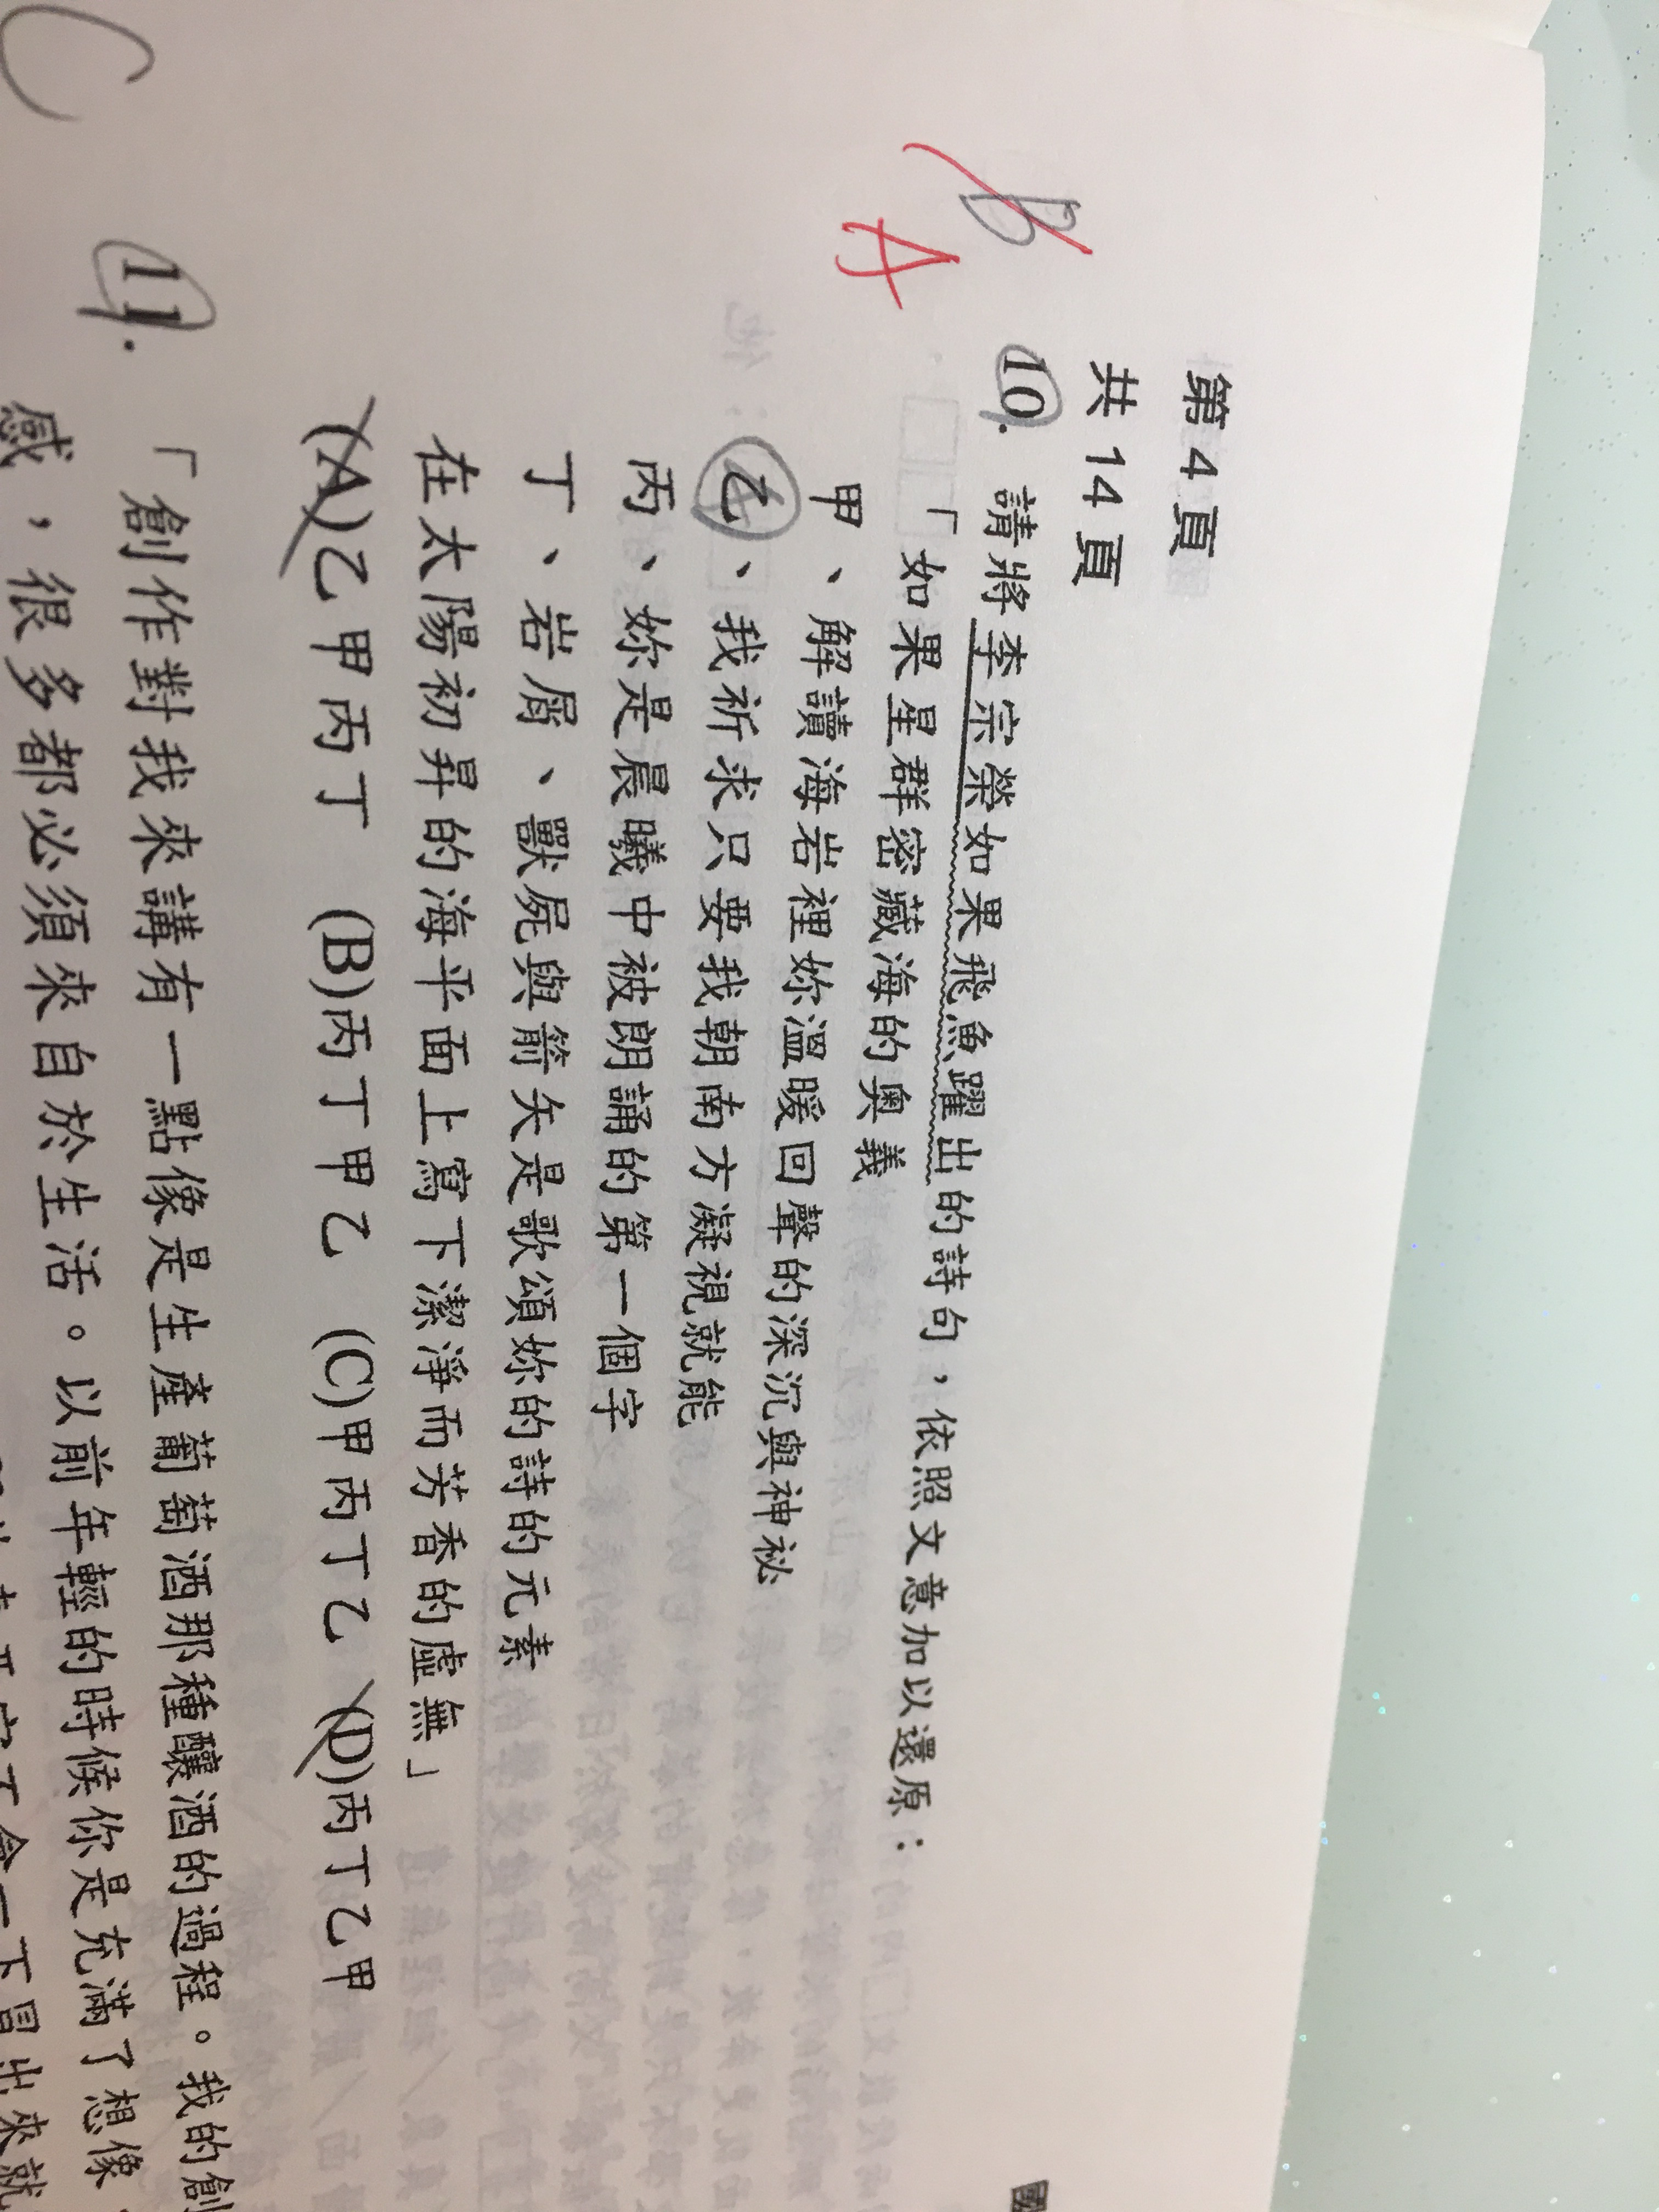 第4頁
共14頁
B
A
10. 請將李宗榮如果飛魚躍出的詩句，依照文意加以還原：
「如果星群密藏海的奧義
甲、解讀海岩裡妳溫暖回聲的深沉與神祕
乙、我祈求只要我朝南方凝視就能
丙、妳是晨曦中被朗誦的第一個字
丁、岩屑、獸屍與箭矢是歌頌妳的詩的元素
在太陽初昇的海平面上寫下潔淨而芳香的虛無」
(A)乙甲丙丁 (B)丙丁甲乙 (C)甲丙丁乙 (D)丙丁乙甲
C
11. 「創作對我來講有一點像是生產葡萄酒那種釀酒的過程。我的創
感，很多都必須來自於生活。以前年輕的時候你是充滿了想像